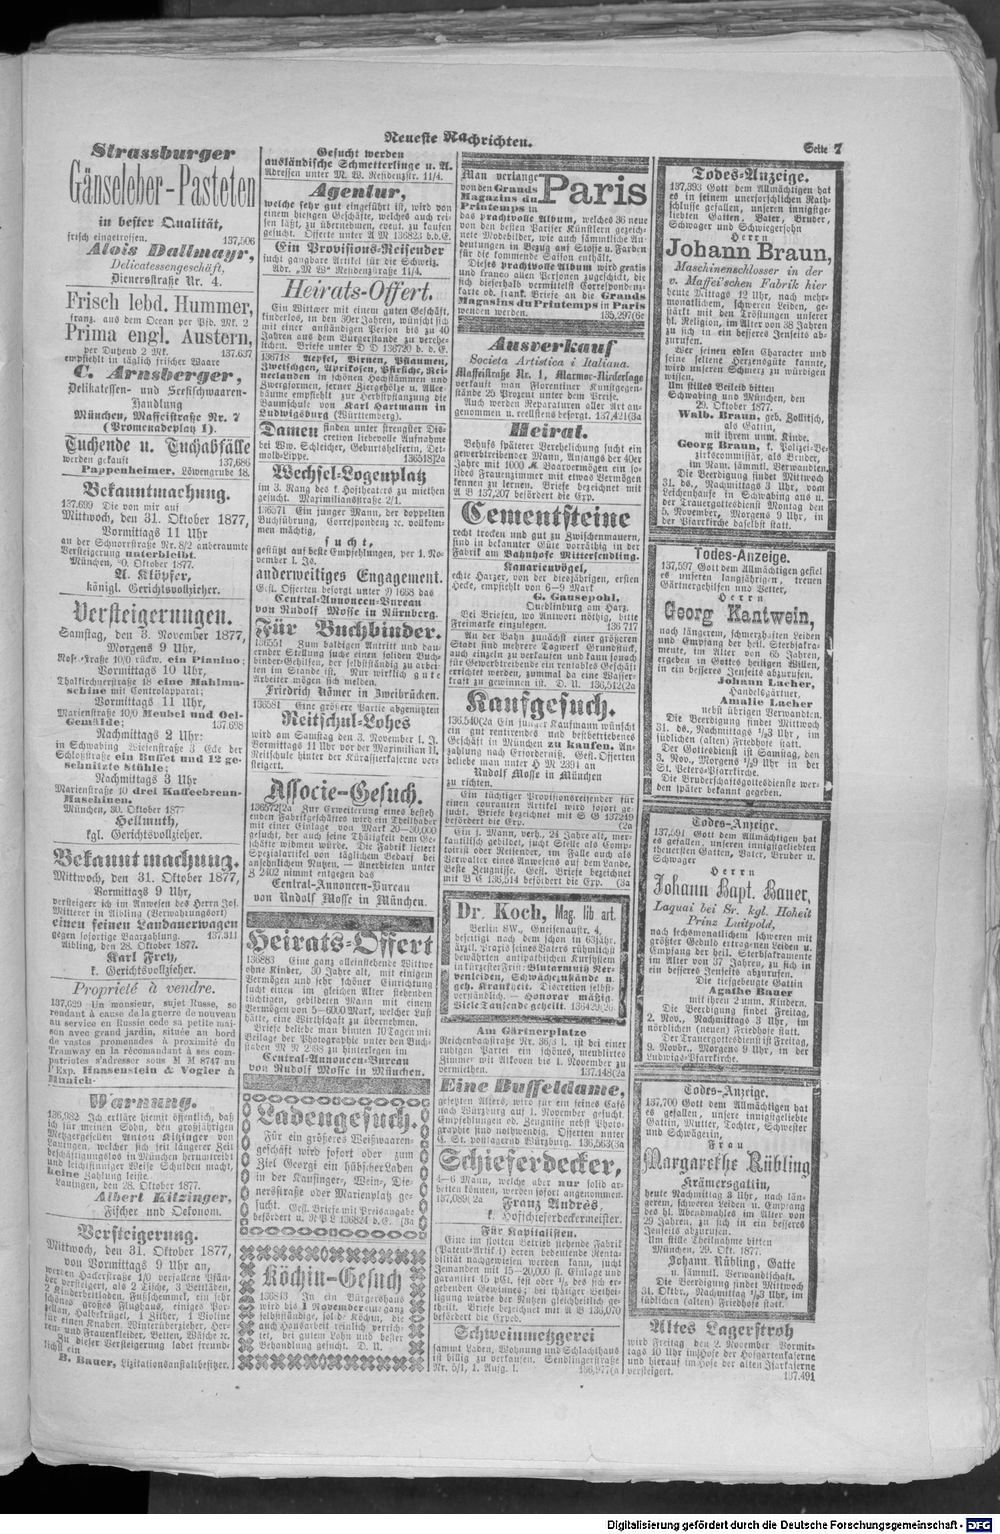 Neueste Nachrichten.
Seite 7
Strassburger
Gänseleber-Pasteten
in bester Qualität,
frisch eingetroffen. 137,506
Alois Dallmayr,
Delicatessengeschäft,
Dienersstraße Nr. 4.
Frisch lebd. Hummer,
franz. aus dem Ocean per Pfd. Mk. 2
Prima engl. Austern,
per Dutzend 2 Mk. 137,637
empfiehlt in täglich frischer Waare
C. Arnsberger,
Delikatessen- und Seefischwaaren-
Handlung
München, Maffeistraße Nr. 7
(Promenadeplatz 1).
Tuchende u. Tuchabfälle
werden gekauft 137,686
Pappenheimer, Löwengrube 18.
Bekanntmachung.
137.699 Die von mir auf
Mittwoch, den 31. Oktober 1877,
Vormittags 11 Uhr
an der Schnorrstraße Nr. 8/2 anberaumte
Versteigerung unterbleibt.
München, 30. Oktober 1877.
A. Klöpfer,
königl. Gerichtsvollzieher.
Versteigerungen.
Samstag, den 3. November 1877,
Morgens 9 Uhr,
Rosenstraße 10/0 rückw. ein Pianino;
Vormittags 10 Uhr,
Thalkirchnerstraße 18 eine Mahlma-
schine mit Controlapparat;
Vormittags 11 Uhr,
Marienstraße 10/0 Meubel und Oel-
Gemälde; 137.698
Nachmittags 2 Uhr:
in Schwabing Wiesenstraße 3 Ecke der
Schloßstraße ein Buffet und 12 ge-
schnitzte Stühle;
Nachmittags 3 Uhr
Marienstraße 10 drei Kaffeebrenn-
Maschinen.
München, 30. Oktober 1877
Hellmuth,
kgl. Gerichtsvollzieher.
Bekanntmachung.
Mittwoch, den 31. Oktober 1877,
Vormittags 9 Uhr,
versteigere ich im Anwesen des Herrn Jos.
Mitterer in Aibling (Verwahrungsort)
einen feinen Landauerwagen
gegen sofortige Baarzahlung. 137.311
Aibling, den 28. Oktober 1877.
Karl Frey,
k. Gerichtsvollzieher.
Proprieté à vendre.
137,629 Un monsieur, sujet Russe, se
rendant à cause de la guerre de nouveau
au service en Russie cede sa petite mai-
son avec grand jardin, située au bord
de vastes promenades à proximité du
Tramway en la récomandant à ses com-
patriotes s'adresser sous M M 8747 an
l'Exp. Hansenstein & Vogler à
Munich.
Warnung.
136,982 Ich erkläre hiemit öffentlich, daß
ich für meinen Sohn, den großjährigen
Metzgergesellen Anton Kitzinger von
Lauingen, welcher sich seit längerer Zeit
beschäftigungslos in München herumtreibt
und leichtsinniger Weise Schulden macht,
keine Zahlung leiste.
Lauingen, den 28. Oktober 1877.
Albert Kitzinger,
Fischer und Oekonom.
Versteigerung.
Mittwoch, den 31. Oktober 1877,
von Vormittags 9 Uhr an,
werden Hackerstraße 1/0 verfallene Pfän-
der versteigert, als 2 Tische, 3 Bettläden,
2 Kinderbettladen, Fußschemmel, ein sehr
schönes großes Flughaus, einiges Por-
zellan, Halbekrügel, 1 Zither, 1 Violine
für einen Knaben. Winterüberzieher, Her-
ren- und Frauenkleider, Betten, Wäsche 2c.
Zu dieser Versteigerung ladet freund-
lichst ein
B. Bauer, Lizitationsanstaltbesitzer.
Gesucht werden
ausländische Schmetterlinge u. A.
Adressen unter M. W. Residenzstr. 11/4.
Agentur,
welche sehr gut eingeführt ist, wird von
einem hiesigen Geschäfte, welches auch rei-
sen läßt, zu übernehmen, event. zu kaufen
gesucht. Offerte unter A M 136823 b.d.E.
Ein Provisions-Reisender
sucht gangbare Artikel für die Schweiz.
Adr. „M W“ Residenzstraße 11/4.
Heirats-Offert.
Ein Wittwer mit einem guten Geschäft,
kinderlos, in den 30er Jahren, wünscht sich
mit einer anständigen Person bis zu 40
Jahren aus dem Bürgerstande zu vereheli-
lichen. Briefe unter D D 136720 b. d. E.
136718 Aepfel, Birnen, Pflaumen,
Zwetschgen, Aprikosen, Pfirsiche, Rei-
neclauden in schönen Hochstämmen und
Zwergformen, ferner Ziergehölze u. Allee-
bäume empfiehlt zur Herbstpflanzung die
Baumschule von Karl Hartmann in
Ludwigsburg (Württemberg).
Damen finden unter strengster Dis-
cretion liebevolle Aufnahme
bei Ww. Schleicher, Geburtshelferin, Det-
mold-Lippe. 136518|2a
Wechsel-Logenplatz
im 3. Rang des k. Hoftheaters zu miethen
gesucht. Maximiliansstraße 2/1.
136571 Ein junger Mann, der doppelten
Buchführung, Correspondenz 2c. vollkom-
men mächtig,
sucht,
gestützt auf beste Empfehlungen, per 1. No-
vember l. Js.
anderweitiges Engagement.
Gest. Offerten besorgt unter 9) 1668 das
Central-Annoncen-Bureau
von Rudolf Mosse in Nürnberg.
Für Buchbinder.
136551 Zum baldigen Antritt und dau-
ernder Stellung suche einen soliden Buch-
binder-Gehilfen, der selbstständig zu arbei-
ten im Stande ist. Nur wirklich gute
Arbeiter mögen sich melden.
Friedrich Römer in Zweibrücken.
136581 Eine größere Partie abgenützten
Reitschul-Lohes
wird am Samstag den 3. November l. J.
Vormittags 11 Uhr vor der Maximilian II.
Reitschule hinter der Kürassierkaserne ver-
steigert.
Associe-Gesuch.
136572|2a Zur Erweiterung eines besteh-
enden Fabrikgeschäftes wird ein Theilhaber
mit einer Einlage von Mark 20—30,000
gesucht, der auch seine Thätigkeit dem Ge-
schäfte widmen würde. Die Fabrik liefert
Spezialartikel von täglichem Bedarf bei
ansehnlichem Nutzen. — Anerbieten unter
S 2402 nimmt entgegen das
Central-Annoncen-Bureau
von Rudolf Mosse in München.
Heirats-Offert
136883 Eine ganz alleinstehende Wittwe
ohne Kinder, 30 Jahre alt, mit einigem
Vermögen und sehr schöner Einrichtung
sucht einen im gleichen Alter stehenden
tüchtigen, gebildeten Mann mit einem
Vermögen von 5—6000 Mark, welcher Lust
hätte, eine Wirthschaft zu übernehmen.
Briefe beliebe man binnen 10 Tagen mit
Beilage der Photographie unter den Buch-
staben M N 2398 zu hinterlegen im
Central-Annoncen-Bureau
von Rudolf Mosse in München.
Ladengesuch.
Für ein größeres Weißwaaren-
geschäft wird sofort oder zum
Ziel Georgi ein hübscher Laden
in der Kaufinger-, Wein-, Die-
nersstraße oder Marienplatz ge-
sucht. Gest. Briefe mit Preisangabe
befördert u. N P L 136824 d. E. [3a
Köchin-Gesuch
136843 In ein Bürgershaus
wird bis 1 November eine ganz
selbstständige, solche Köchin, die
auch Hausarbeit reinlich verrich-
tet, bei gutem Lohn und bester
Behandlung gesucht. D. U.
Man verlange
von den Grands
Magazins du
Printemps in
Paris
das prachtvolle Album, welches 36 neue
von den besten Pariser Künstlern gezeich-
nete Modebilder, wie auch sämmtliche An-
deutungen in Bezug auf Stoffe u. Farben
für die kommende Saison enthält.
Dieses prachtvolle Album wird gratis
und franco allen Personen zugeschickt, die
sich dieserhalb vermittelst Correspondenz-
karte od. frank. Briefe an die Grands
Magasins du Printemps in Paris
wenden werden. 135,297(6e
Ausverkauf
Societa Artistica i Italiana.
Maffeistraße Nr. 1, Marmor-Niederlage
verkauft man Florentiner Kunstgegen-
stände 25 Prozent unter dem Preise.
Auch werden Reparaturen aller Art an-
genommen u. reellstens besorgt. 137,421(3a
Heirat.
Behufs späterer Verehelichung sucht ein
gewerbtreibender Mann, Anfangs der 40er
Jahre mit 1000 M. Baarvermögen ein so-
lides Frauenzimmer mit etwas Vermögen
kennen zu lernen. Briefe bezeichnet mit
A B 137,207 befördert die Exp.
Cementsteine
recht trocken und gut zu Zwischenmauern,
sind in bekannter Güte vorräthig in der
Fabrik am Bahnhofe Mittersendling.
Kanarienvögel,
echte Harzer, von der diesjährigen, ersten
Hecke, empfiehlt von 6—9 Mark
G. Gansepohl,
Quedlinburg am Harz.
Bei Briefen, wo Antwort nöthig, bitte
Freimarke einzulegen. 136 717
An der Bahn zunächst einer größeren
Stadt sind mehrere Tagwerk Grundstück,
auch einzeln zu verkaufen und kann sowoh
für Gewerbtreibende ein rentables Geschäft
errichtet werden, zummal da eine Wasser-
kraft zu gewinnen ist. D. U. 136,512(2a
Kaufgesuch.
136.540(2a Ein junger Kaufmann wünscht
ein gut rentirendes und bestbetriebenes
Geschäft in München zu kaufen. An-
zahlung nach Erforderniß. Gest. Offerten
beliebe man unter H M 2391 an
Rudolf Mosse in München
zu richten.
Ein tüchtiger Provisionsreisender für
einen couranten Artikel wird sofort ge-
sucht. Briefe bezeichnet mit S G 137249
befördert die Exp. (2a
Ein j. Mann, verh., 24 Jahre alt, mer-
kantilisch gebildet, sucht Stelle als Comp-
toirist oder Reisender, im Falle auch als
Verwalter eines Anwesens auf dem Lande.
Beste Zeugnisse. Gest. Briefe bezeichnet
mit B C 136,514 befördert die Exp. (3a
Dr. Koch, Mag. lib art.
Berlin SW., Gneisenaustr. 4,
beseitigt nach dem schon in 63jähr.
ärztl. Praxis seines Vaters rühmlichst
bewährten antipathischen Kursystem
in kürzester Frist: Blutarmuth, Ner-
venleiden, Schwächezustände u.
geh. Krankheit. Discretion selbst-
verständlich. — Honorar mäßig.
Viele Tausende geheilt. 136429(26
Am Gärtnerplatze
Reichenbachstraße Nr. 36/3 l. ist bei einer
ruhigen Partei ein schönes, meublirtes
Zimmer mit Alkoven bis 1. November zu
vermiethen. 137,148(2a
Eine Buffetdame,
gesetzten Alters, wird für ein feines Café
nach Würzburg auf 1. November gesucht.
Empfehlungen od. Zeugnisse nebst Photo-
graphie sind nothwendig. Offerten unter
C. St. postlagernd Würzburg. 136,563(3a
Schieferdecker,
4—6 Mann, welche aber nur solid ar-
beiten können, werden sofort angenommen.
137,089(2a Franz Andres,
k. Hofschieferdeckermeister.
Für Kapitalisten.
Eine im flotten Betrieb stehende Fabrik
(Patent-Artikel) deren bedeutende Renta-
bilität nachgewiesen werden kann, sucht
Jemanden mit 15—20,000 fl. Einlage und
garantirt 15 pCt. fest oder 1/3 des sich er-
gebenden Gewinnes; bei thätiger Betheili-
gung würde der Nutzen gleichheitlich ge-
theilt. Briefe bezeichnet mit A B 136,070
befördert die Exped.
Schweinmetzgerei
sammt Laden, Wohnung und Schlachthaus
ist billig zu verkaufen. Sendlingerstraße
Nr. 5/1, 1. Aufg. l. 136,977(a
Todes-Anzeige.
137,393 Gott dem Allmächtigen hat
es in seinem unerforschlichen Rath-
schlusse gefallen, unseren innigstge-
liebten Gatten, Vater, Bruder,
Schwager und Schwiegersohn
Herrn
Johann Braun,
Maschinenschlosser in der
v. Maffei'schen Fabrik hier
heute Mittags 12 Uhr, nach mehr-
monatlichem, schweren Leiden, ge-
stärkt mit den Tröstungen unserer
hl. Religion, im Alter von 38 Jahren
zu sich in ein besseres Jenseits ab-
zurufen.
Wer seinen edlen Character und
seine seltene Herzensgüte kannte,
wird unseren Schmerz zu würdigen
wissen.
Um stilles Beileid bitten
Schwabing und München, den
29. Oktober 1877.
Walb. Braun, geb. Zollitsch,
als Gattin,
mit ihrem unm. Kinde.
Georg Braun, k. Polizei-Be-
zirkscommissär, als Bruder,
im Nam. sämmtl. Verwandten.
Die Beerdigung findet Mittwoch
31. ds., Nachmittags 3 Uhr, vom
Leichenhause in Schwabing aus u.
der Trauergottesdienst Montag den
5. November, Morgens 9 Uhr, in
der Pfarrkirche daselbst statt.
Todes-Anzeige.
137,597 Gott dem Allmächtigen gefiel
es unseren langjährigen, treuen
Gärtnergehilfen und Vetter,
Herrn
Georg Kantwein,
nach längerem, schmerzhaften Leiden
und Empfang der heil. Sterbsakra-
mente, im Alter von 65 Jahren,
ergeben in Gottes heiligen Willen,
in ein besseres Jenseits abzurufen.
Johann Lacher,
Handelsgärtner,
Amalie Lacher
nebst übrigen Verwandten.
Die Beerdigung findet Mittwoch
31. ds., Nachmittags 1/23 Uhr, im
südlichen (alten) Friedhofe statt.
Der Gottesdienst ist Samstag, den
3. Nov., Morgens 1/29 Uhr in der
St. Peters-Pfarrkirche.
Die Bruderschaftsgottesdienste wer-
den später bekannt gegeben.
Todes-Anzeige.
137,591 Gott dem Allmächtigen hat
es gefallen, unseren innigstgeliebten
theuersten Gatten, Vater, Bruder u.
Schwager
Herrn
Johann Bapt. Bauer,
Laquai bei Sr. kgl. Hoheit
Prinz Luitpold,
nach sechsmonatlichem schweren mit
größter Geduld ertragenen Leiden u.
Empfang der heil. Sterbsakramente
im Alter von 37 Jahren, zu sich in
ein besseres Jenseits abzurufen.
Die tiefgebeugte Gattin
Agathe Bauer
mit ihren 2 unm. Kindern.
Die Beerdigung findet Freitag,
2. Nov., Nachmittags 3 Uhr, im
nördlichen (neuen) Friedhofe statt.
Der Trauergottesdienst ist Freitag,
9. Novbr., Morgens 9 Uhr, in der
Ludwigs-Pfarrkirche.
Todes-Anzeige.
137,700 Gott dem Allmächtigen hat
es gefallen, unsere innigstgeliebte
Gattin, Mutter, Tochter, Schwester
und Schwägerin,
Frau
Margarethe Rübling
Krämersgattin,
heute Nachmittag 3 Uhr, nach län-
gerem, schweren Leiden u. Empfang
des hl. Abendmahles im Alter von
29 Jahren, zu sich in ein besseres
Jenseits abzurufen.
Um stille Theilnahme bitten
München, 29. Okt. 1877.
Johann Rübling, Gatte
u. sämmtl. Verwandtschaft.
Die Beerdigung findet Mittwoch
31. Oktbr., Nachmittag 1/23 Uhr, im
südlichen (alten) Friedhofe statt.
Altes Lagerstroh
wird Freitag den 2. November Vormit-
tags 10 Uhr im Hofe der Hofgartenkaserne
und hierauf im Hofe der alten Isarkaserne
versteigert. 137.491
Digitalisierung gefördert durch die Deutsche Forschungsgemeinschaft - DFG